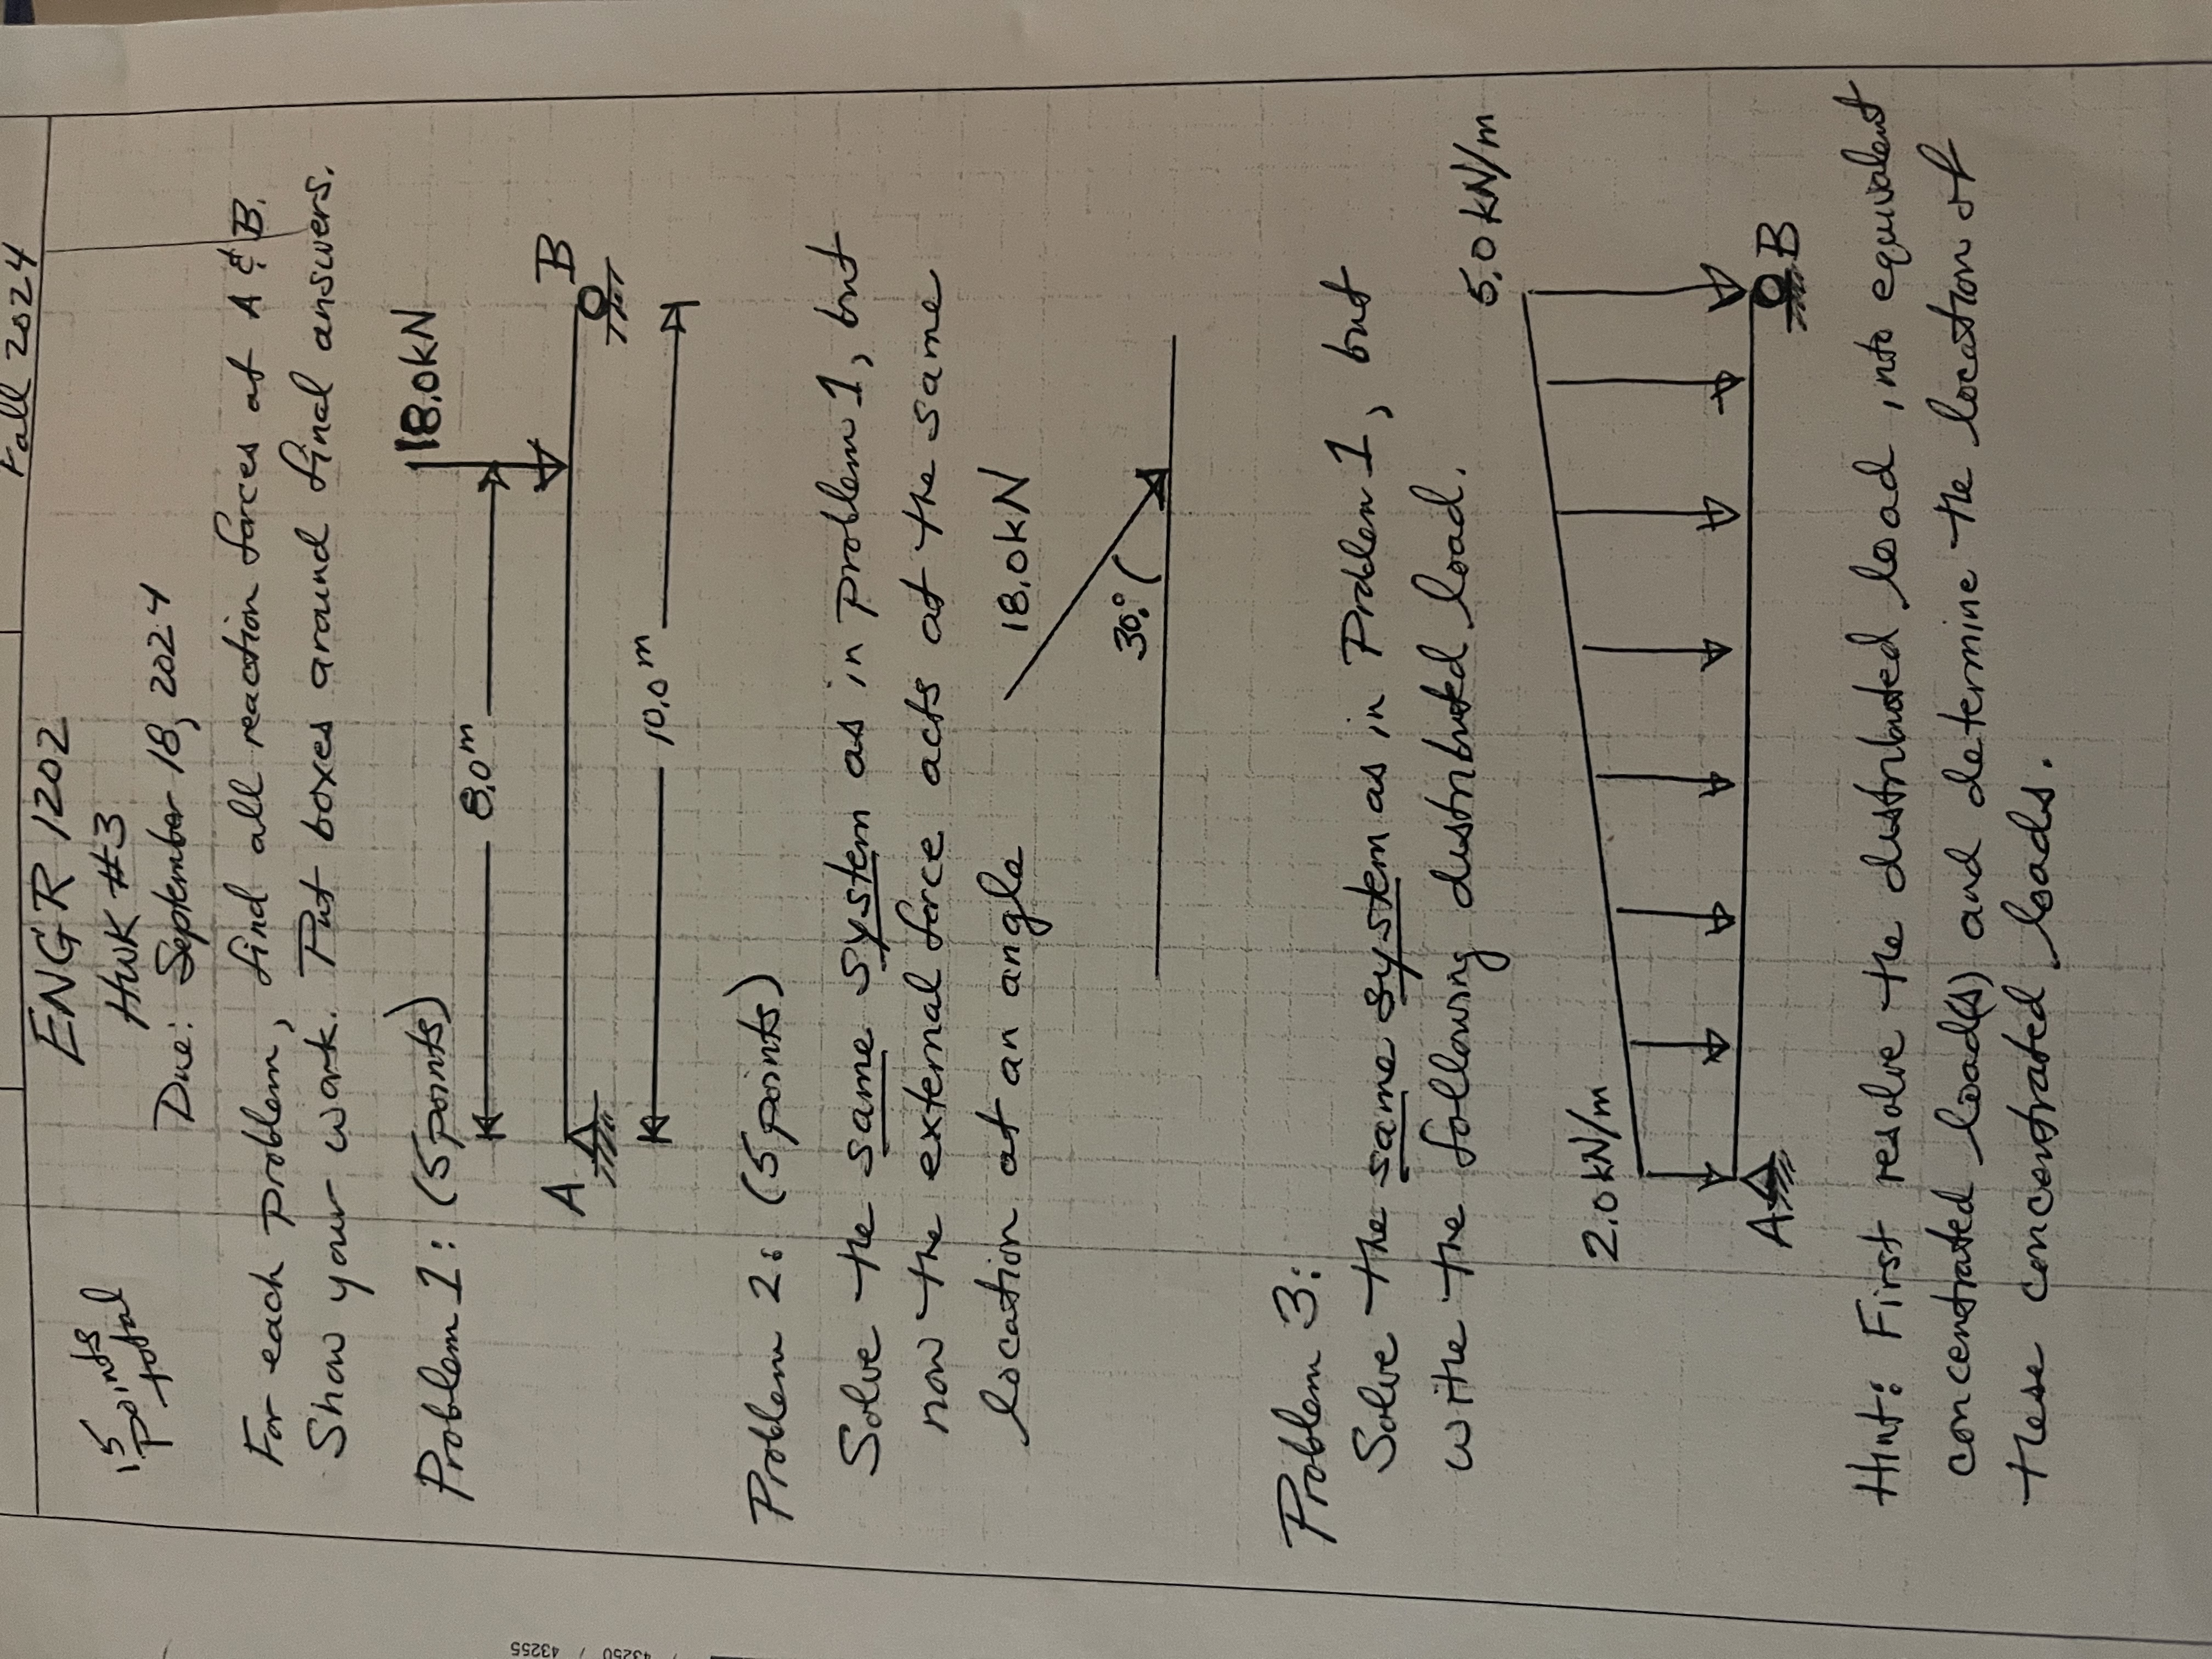 Fall 2024
ENGR 1202
HWK #3
Due: September 18, 2024
15 points total
For each problem, find all reaction forces at A & B.
Show your work. Put boxes around final answers.
Problem 1: (5 points)
18.0kN
8.0 m
A
B
10.0 m
Problem 2: (5 points)
Solve the same system as in problem 1, but
now the external force acts at the same
location at an angle
18.0kN
30.°
Problem 3:
Solve the same system as in Problem 1, but
with the following distributed load.
2.0 kN/m
5.0 kN/m
A
B
Hint: First resolve the distributed load into equivalent
concentrated load(s) and determine the location of
these concentrated loads.
43250 / 43255